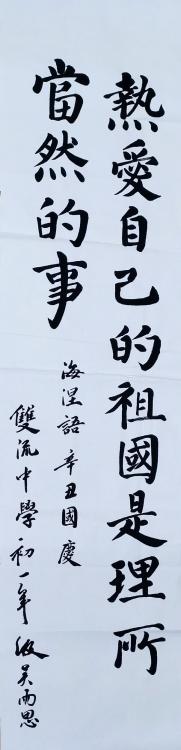 熱愛自己的祖國是理所
當然的事
海涅語辛丑國慶
雙流中學初一年級吴雨思